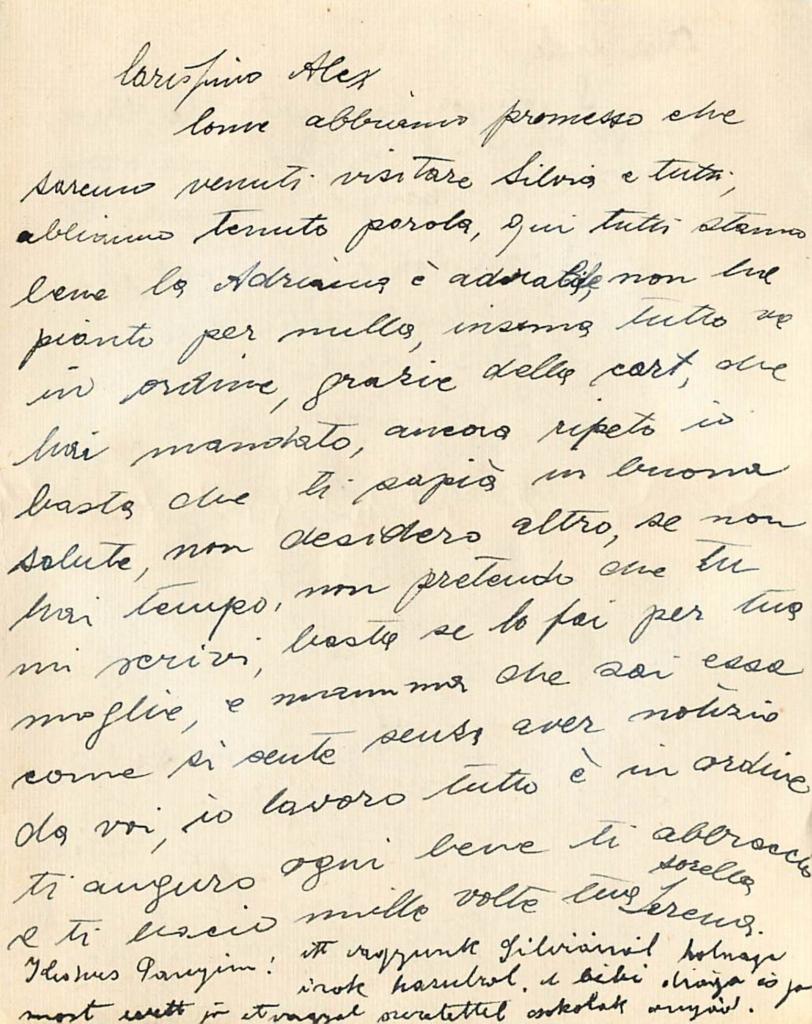 Carissimo Alex
Come abbiamo promesso che
saremo venuti visitare Silvia e tutti,
abbiamo tenuto parola, qui tutti stanno
bene la Adriana è adorabile, non he
pianto per nulla, insoma tutto va
in ordine, grazie della cart, che
hai mandato, ancora ripeto io
basta che ti sapia in buona
salute, non desidero altro, se non
hai tempo, non pretendo che tu
mi scrivi, basta se lo fai per tua
moglie, e mamma che sai essa
come si sente senza aver notizio
da voi, io lavoro tutto è in ordine
ti auguro ogni bene ti abbraccio
e ti bacio mille volte tua sorella Serena.
itt vagyunk Silviánál holnap
irok a bibi drága és jó
most szeretettel csokolak anyád.